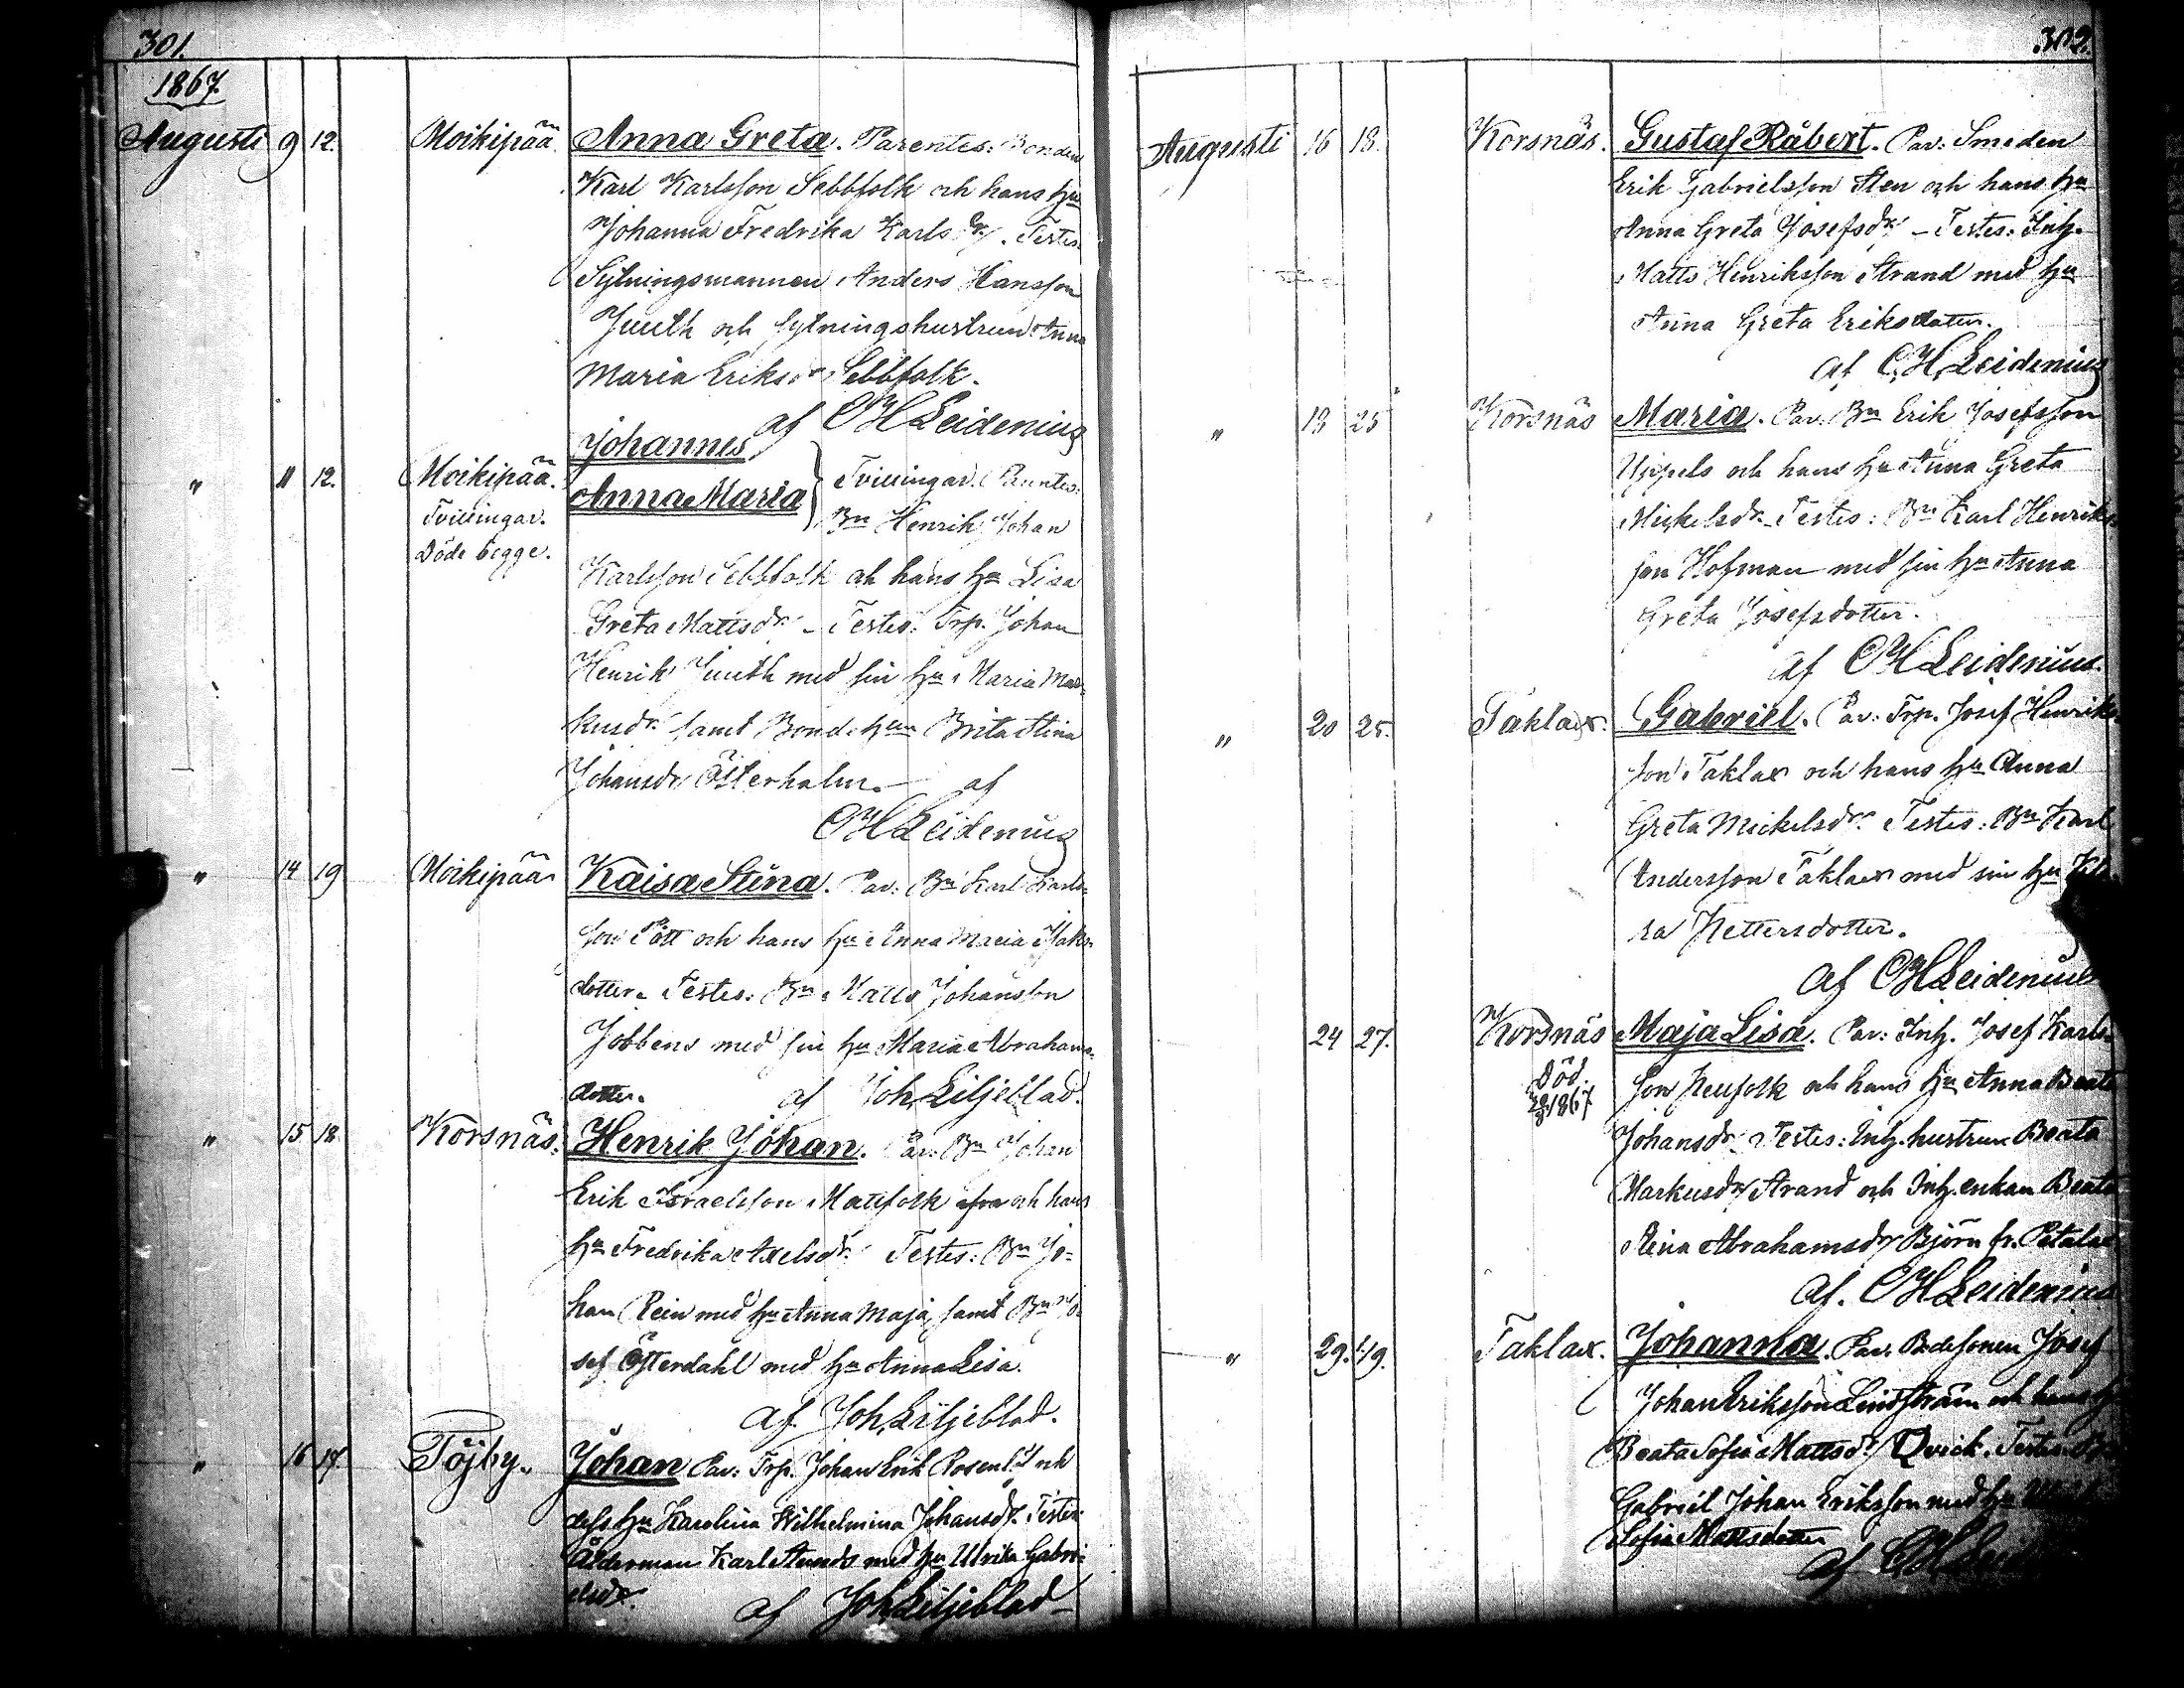 301.
1867.
Augusti 9 12. Moikipää Anna Greta. Parentes: Bonden
Karl Karlsson Sebbfolk och hans hu
Johanna Fredrika Karlsdr. Testes
Sytningsmannen Anders Hansson
Juuth och sytningshustrun Anna
Maria Eriksdr Sebbfolk.
af CHLeidenius
Johannes
" 11 12. Moikipää. Anna Maria } Tvillingar. Parentes:
Tvillingar. Bn Henrik Johan
Döde begge.
Karlsson Sebbfolk och hans hu Lisa
Greta Mattsdr. – Testes: Trp. Johan
Henrik Juuth med sin hu Maria Mar-
kusdr. samt Bondehun Brita Stina
Johansdr Österholm. – af
CHLeidenius
" 14 19 Moikipää Kaisa Stina. Par: Bn Karl Karls-
son Pått och hans hu Anna Maria
dotter. Testes: Bn Matts Johansson
Jobbens med sin hu Maria Abrahams-
dotter. af Joh. Liljeblad.
" 15 18 Korsnäs. Henrik Johan. Par: Bn Johan
Erik Israelsson Mattfolk och hans
hu Fredrika Axelsdr. Testes: Bn Jo-
han Rein med hu Anna Maja, samt Bn Jo-
sef Österdahl med hu Anna Lisa.
af Joh. Liljeblad.
" 16 17. Töjby. Johan Par: Trp. Johan Erik och
dess hu Karolina Wilhelmina Johansdr. Testes:
Ålderman Karl med hu Ulrika Gabri-
elsdr.
af Joh Liljeblad –
302.
Augusti 16 18. Korsnäs. Gustaf Råbert. Par: Smeden
Erik Gabrielsson Sten och hans hu
Anna Greta Josefsdr. – Testes: Inh.
Matts Henriksson Strand med hu
Anna Greta Eriksdatter.
af C.H.Leidenius
" 18 25 Korsnäs Maria. Par: Bn Erik Josefsson
och hans hu Anna Greta
Mickelsdr. Testes: Bn Karl Henriks
son Hofman med sin hu Anna
Greta Josefsdotter.
af CHLeidenius.
" 20 25. Taklax. Gabriel. Par: Trp. Josef Henriks-
son Taklax och hans hu Anna
Greta Mickelsdr. Testes: Bn Karl
Andersson Taklax med sin hu
ra Hettersdotter.
af CHLeidenius
24 27. Korsnäs Maja Lisa. Par: Inh. Josef Karls-
Död. son och hans hu Anna Beata
1867
Johansdr. Testes: Inh. hustrun Beata
Markusdr Strand och Inh. enkan Beata
Stina Abrahamsdr Björn fr. Petalax
af. CHLeidenius
" 29. 1/9. Taklax. Johanna. Par. Bdesonen Josef
Johan Eriksson Lindström och hans h
Beata Sofia Mattsdr Qvick. Testes:
Gabriel Johan Eriksson med hu
Sofia Mattsdotter
af CHLeid